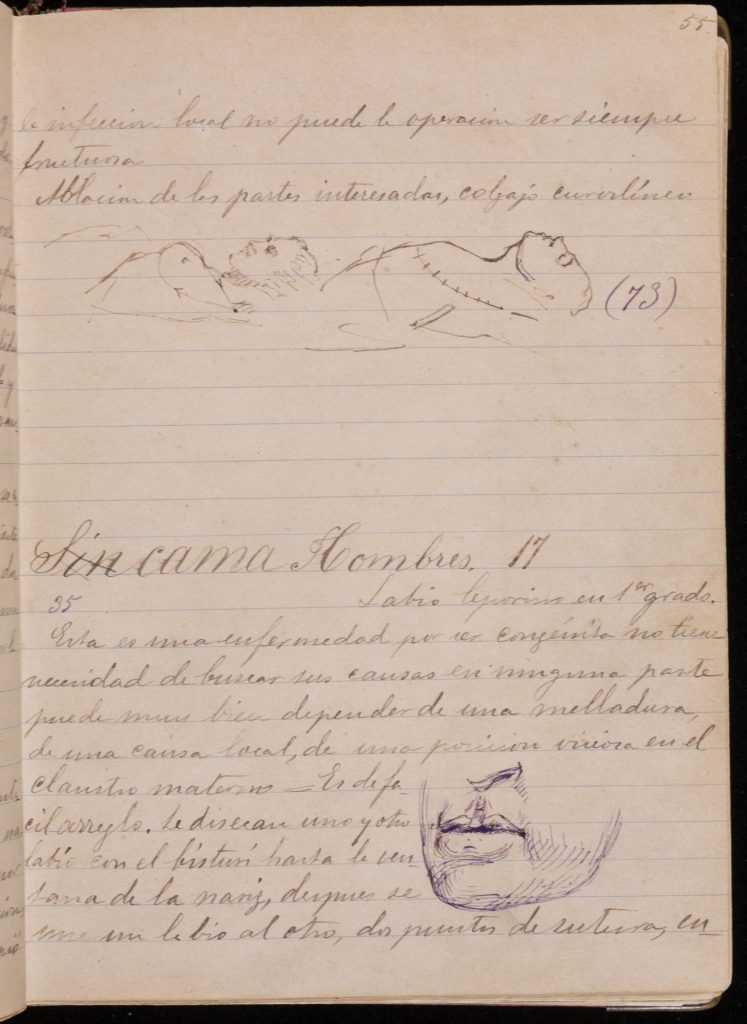 55.
la infeccion local no puede la operacion ser siempre
fructuosa
Ablacion de las partes interesadas, colgajo curvilíneo
(73)
Sin cama Hombres. 17
35 Labio leporino en 1er grado.
Esta es una enfermedad por ser congénita no tiene
necesidad de buscar sus causas en ninguna parte
puede muy bien depender de una melladura,
de una causa local, de una posicion viciosa en el
claustro materno = Es de fa
cil arreglo. Se disecan uno y otro
labio con el bisturí hasta la ven-
tana de la nariz, despues se
une un labio al otro, dos puntos de sutura, en